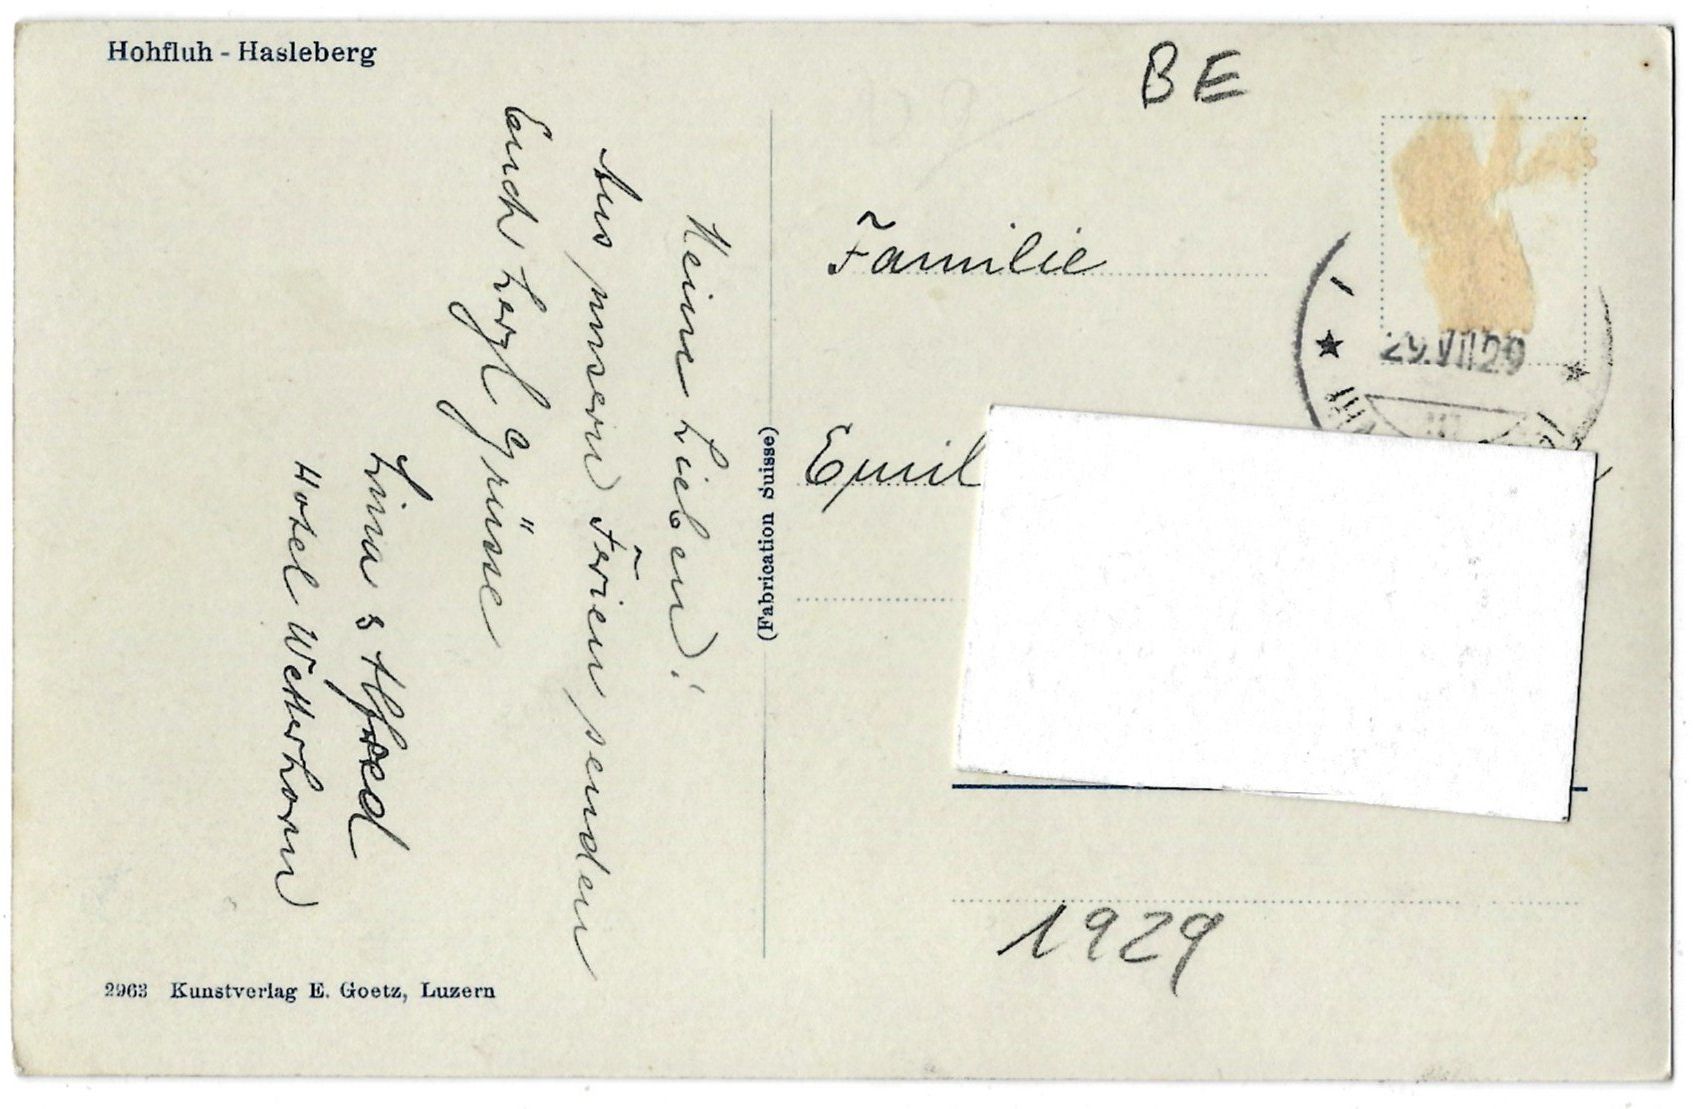 Hohfluh - Hasleberg
Meine Lieben!
Aus unsern Ferien senden
Euch herzl Grüsse
Lina & Alfred
Hotel Wetterhorn
2963 Kunstverlag E. Goetz, Luzern
(Fabrication Suisse)
BE
29.VII29
Familie
Emil
1929